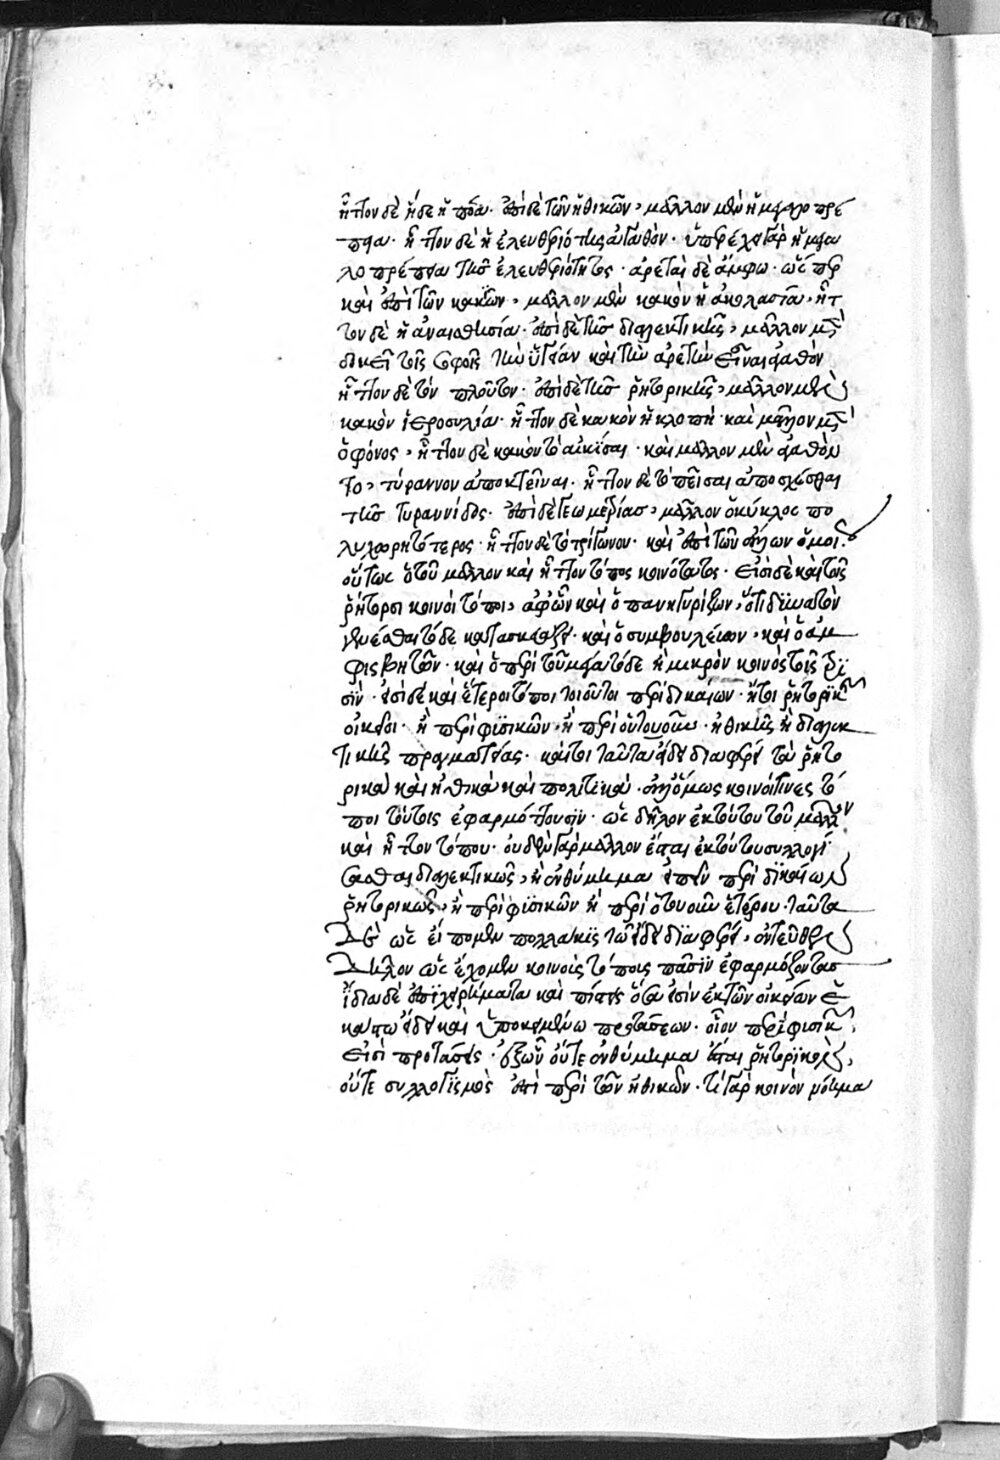 ἧττον δὲ ἥδε ἡ πόα. ἐπὶ δὲ τῶν ἠθικῶν, μᾶλλον μὲν ἡ μεγαλοπρέ
πεια. ἧττον δὲ ἡ ἐλευθεριότης ἀγαθόν. ὑπερέχει γὰρ ἡ μεγα
λοπρέπεια τῆς ἐλευθεριότητος. ἀρεταὶ δὲ ἄμφω. ὥσπερ
καὶ ἐπὶ τῶν κακῶν, μᾶλλον μὲν κακὸν ἡ ἀκολασία, ἧτ
τον δὲ ἡ ἀναισθησία. ἐπὶ δὲ τῆς διαλεκτικῆς, μᾶλλον μὲν
δοκεῖ τοῖς σοφοῖς τὴν ὑγείαν καὶ τὴν ἀρετὴν εἶναι ἀγαθὸν
ἧττον δὲ τὸν πλοῦτον. ἐπὶ δὲ τῆς ῥητορικῆς, μᾶλλον μὲν
κακὸν ἱεροσυλία. ἧττον δὲ κακὸν ἡ κλοπή. καὶ μᾶλλον μὲν
ὁ φόνος, ἧττον δὲ κακὸν τὸ αἰκίσαι. καὶ μᾶλλον μὲν ἀγαθὸν
το, τύραννον ἀποκτεῖναι. ἧττον δὲ τὸ πεῖσαι ἀποσχέσθαι
τῆς τυραννίδος. ἐπὶ δὲ γεωμετρίας, μᾶλλον ὁ κύκλος πο
λυχωρητότερος. ἧττον δὲ τὸ τρίγωνον. καὶ ἐπὶ τῶν ἄλλων ὁμοί.
οὕτως ὁ τοῦ μᾶλλον καὶ ἧττον τόπος κοινότατος. εἰσὶ δὲ καὶ τοῖς
ῥήτορσι κοινοὶ τόποι, ἀφ' ὧν καὶ ὁ πανηγυρίζων, ὅτι δυνατὸν
γενέσθαι τόδε κατασκευάζει. καὶ ὁ συμβουλεύων, καὶ ὁ ἀμ
φισβητῶν. καὶ ὁ περὶ τοῦ μέγα τόδε ἢ μικρὸν κοινὸς τοῖς
σίν. εἰσὶ δὲ καὶ ἕτεροι τόποι τοιοῦτοι περὶ δικαίων. ἤτοι ῥητορικῆς
οἰκεῖοι. ἢ περὶ φυσικῶν. ἢ περὶ ὁτουοῦν. ἠθικῆς ἢ διαλεκ
τικῆς πραγματείας. καίτοι ταῦτα εἴδει διαφέρει τὰ ῥητο
ρικὰ καὶ ἠθικὰ καὶ πολιτικά. ἀλλ' ὅμως κοινοί τινες τό
ποι τούτοις ἐφαρμόττουσιν. ὡς δῆλον ἐκ τούτου τοῦ μᾶλλον
καὶ ἧττον τόπου. οὐδὲν γὰρ μᾶλλον ἔσται ἐκ τούτου συλλογί
σασθαι διαλεκτικῶς, ἢ ἐνθύμημα εἰπεῖν περὶ δικαίων
ῥητορικῶς, ἢ περὶ φυσικῶν ἢ περὶ ὁτουοῦν ἑτέρου. ταῦτα
δὲ ὡς εἴπομεν πολλάκις τῷ εἴδει διαφέρει, ἐντεῦθεν
δῆλον ὡς ἔχομεν κοινοὺς τόπους πᾶσιν ἐφαρμόζοντας
ἴδια δὲ ἐπιχειρήματα καὶ πίστεις ὅσα εἰσὶν ἐκ τῶν οἰκείων ἑ
κάστῳ εἴδει καὶ ὑποκειμένῳ προτάσεων. οἷον περὶ φυσικῶν
εἰσὶ προτάσεις. ἐξ ὧν οὔτε ἐνθύμημα ἔσται ῥητορικὸν,
οὔτε συλλογισμὸς ἐπὶ περὶ τῶν ἠθικῶν. τί γὰρ κοινὸν νόημα